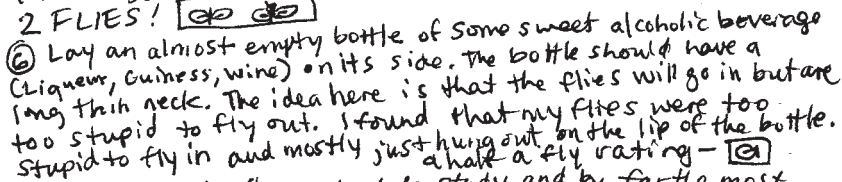 2 FLIES!
⑥ Lay an almost empty bottle of some sweet alcoholic beverage
(Liqueur, Guiness, wine) on its side. The bottle should have a
long thin neck. The idea here is that the flies will go in but are
too stupid to fly out. I found that my flies were too
stupid to fly in and mostly just hung out on the lip of the bottle.
a half a fly rating -